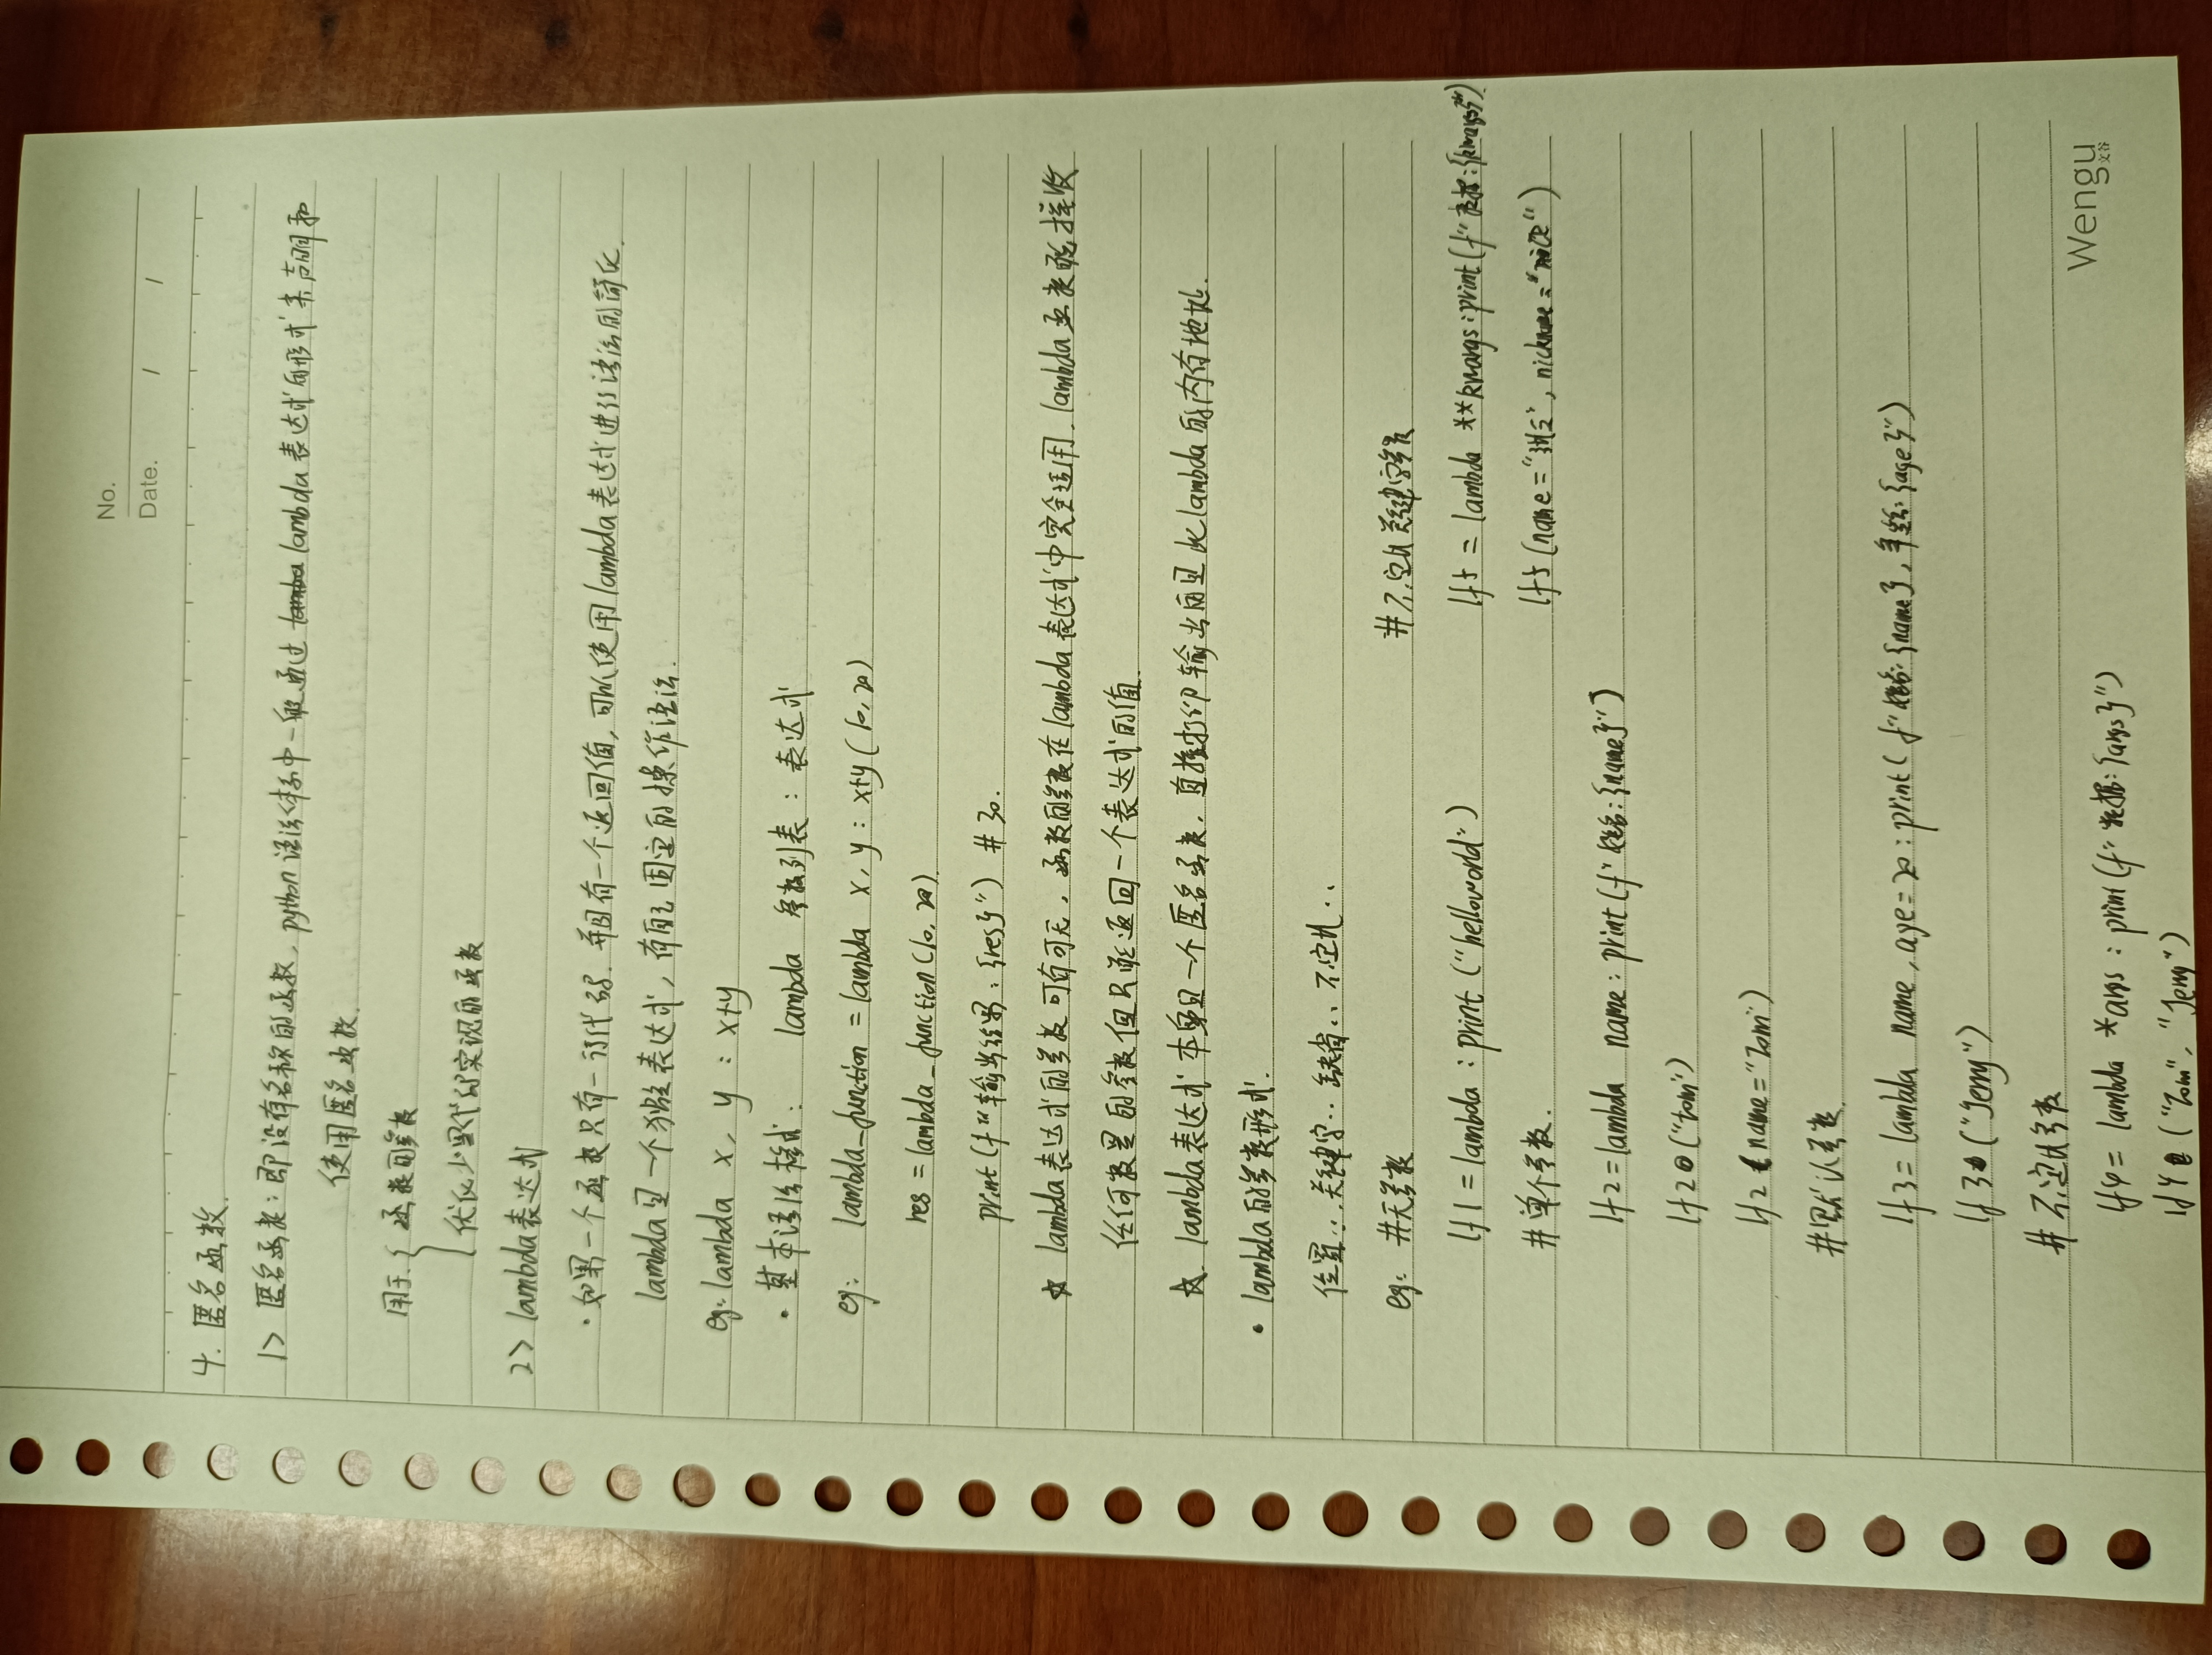 No.
Date. / /
4. 匿名函数.
1> 匿名函数：即没有名称的函数, python语法体系中一般通过 lambda 表达式的形式来声明和
使用匿名函数.
用于 { 函数的参数
优化少量代码实现的函数
2> lambda表达式
·如果一个函数只有一行代码. 并且有一个返回值, 可以使用lambda表达式进行语法的简化.
lambda是一个独立表达式, 有自己固定的操作语法.
eg: lambda x, y : x+y
· 基本语法格式： lambda 参数列表：表达式
eg: lambda_function = lambda x, y : x+y (10, 20)
res = lambda_function(10, 20).
print(f"输出结果：{res}") # 30.
☆ lambda表达式的参数可有可无, 函数的参数在lambda表达式中完全适用. lambda函数能接收
任何数量的参数但只能返回一个表达式的值.
☆. lambda表达式本身是一个匿名函数, 直接打印输出的是此lambda的内存地址.
· lambda的参数形式.
位置.., 关键字.. 缺省.. 不定长..
eg: #无参数
lf1 = lambda : print ("helloworld")
#单个参数.
lf2 = lambda name : print(f"姓名：{name}")
lf2 ("tom")
lf2 (name="Tom")
#默认参数.
lf3 = lambda name, age=20 : print( f"姓名：{name}, 年龄：{age}")
lf3 ("Jerry")
# 不定长参数
lf4 = lambda *args : print(f"数据：{args}")
lf4 ("Tom", "Jerry")
# 不定长关键字参数
lf5 = lambda **kwargs : print(f"数据：{kwargs}")
lf5 (name="张三", nickname="nice")
Wengu
文谷